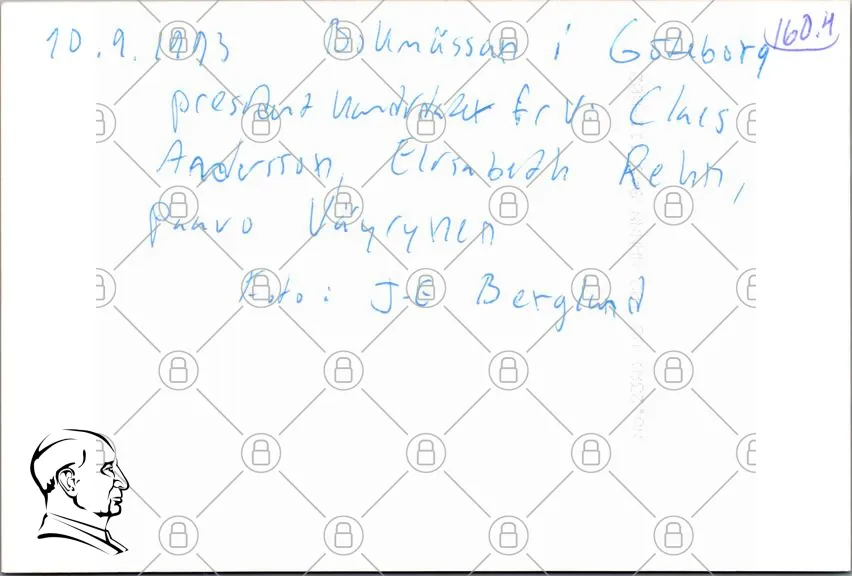 160.4
10.9.1993 Bokmässan i Göteborg
president kandidater fr v: Claes
Andersson, Elisabeth Rehn,
Paavo Väyrynen
Foto: J-E Berglund